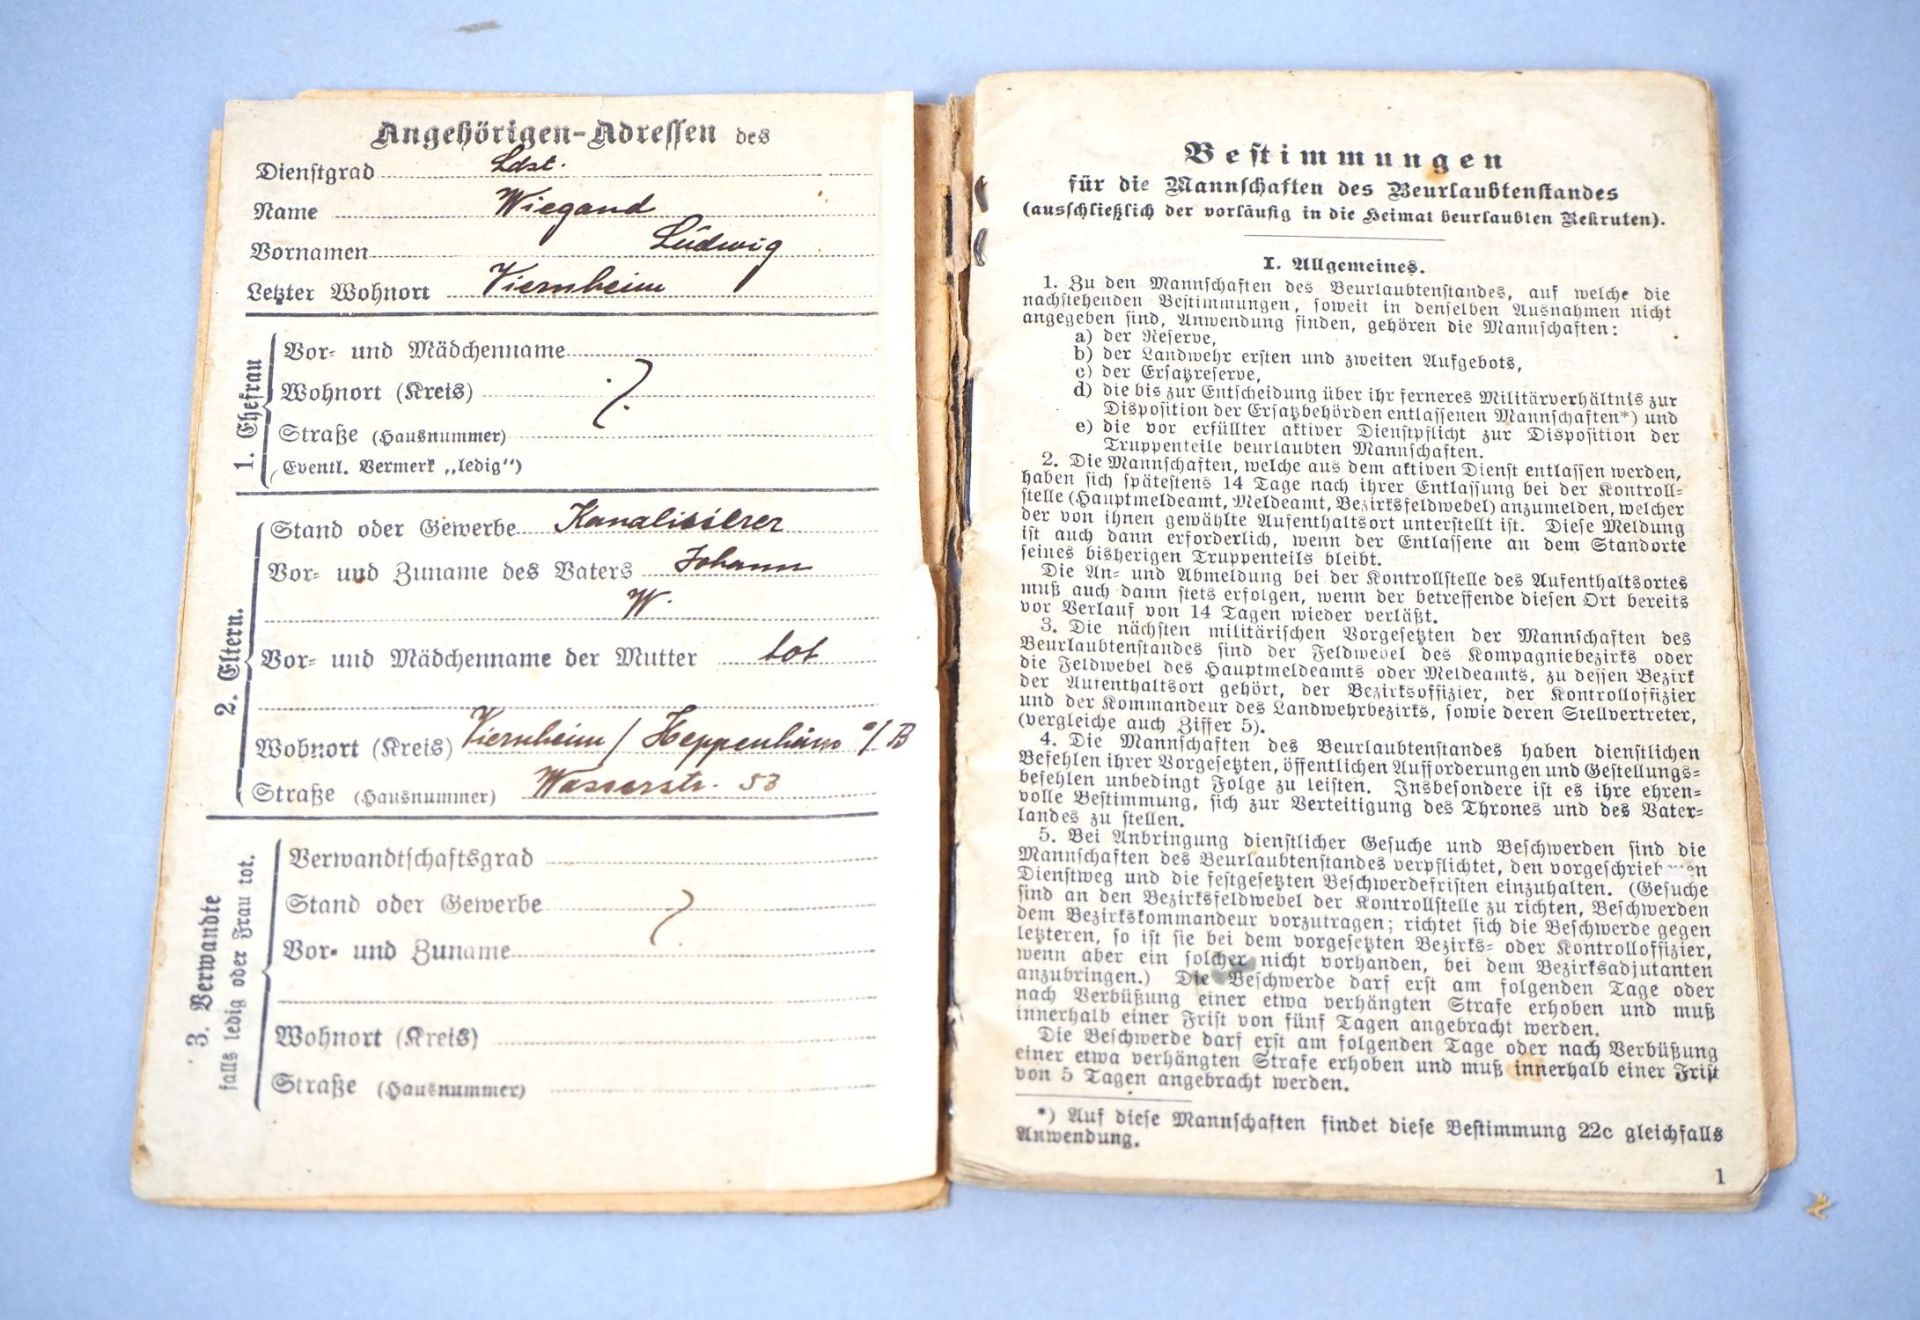 Angehörigen-Adressen des
Dienstgrad Ldst.
Name Wiegand
Vornamen Ludwig
Letzter Wohnort Viernheim
1. Ehefrau
Vor- und Mädchenname
Wohnort (Kreis)
Straße (Hausnummer)
(Eventl. Vermerk „ledig“)
2. Eltern.
Stand oder Gewerbe Kanalisierer
Vor- und Zuname des Vaters Johann
W.
Vor- und Mädchenname der Mutter tot
Wohnort (Kreis) Viernheim / Heppenheim a/B
Straße (Hausnummer) Wasserstr. 53
3. Verwandte
falls ledig oder Frau tot.
Verwandtschaftsgrad
Stand oder Gewerbe
Vor- und Zuname
Wohnort (Kreis)
Straße (Hausnummer)
Bestimmungen
für die Mannschaften des Beurlaubtenstandes
(ausschließlich der vorläufig in die Heimat beurlaubten Rekruten).
I. Allgemeines.
1. Zu den Mannschaften des Beurlaubtenstandes, auf welche die
nachstehenden Bestimmungen, soweit in denselben Ausnahmen nicht
angegeben sind, Anwendung finden, gehören die Mannschaften:
a) der Reserve,
b) der Landwehr ersten und zweiten Aufgebots,
c) der Ersatzreserve,
d) die bis zur Entscheidung über ihr ferneres Militärverhältnis zur
Disposition der Ersatzbehörden entlassenen Mannschaften*) und
e) die vor erfüllter aktiver Dienstpflicht zur Disposition der
Truppenteile beurlaubten Mannschaften.
2. Die Mannschaften, welche aus dem aktiven Dienst entlassen werden,
haben sich spätestens 14 Tage nach ihrer Entlassung bei der Kontroll-
stelle (Hauptmeldeamt, Meldeamt, Bezirksfeldwebel) anzumelden, welcher
der von ihnen gewählte Aufenthaltsort unterstellt ist. Diese Meldung
ist auch dann erforderlich, wenn der Entlassene an dem Standorte
seines bisherigen Truppenteils bleibt.
Die An- und Abmeldung bei der Kontrollstelle des Aufenthaltsortes
muß auch dann stets erfolgen, wenn der betreffende diesen Ort bereits
vor Verlauf von 14 Tagen wieder verläßt.
3. Die nächsten militärischen Vorgesetzten der Mannschaften des
Beurlaubtenstandes sind der Feldwebel des Kompagniebezirks oder
die Feldwebel des Hauptmeldeamts oder Meldeamts, zu dessen Bezirk
der Aufenthaltsort gehört, der Bezirksoffizier, der Kontrolloffizier
und der Kommandeur des Landwehrbezirks, sowie deren Stellvertreter,
(vergleiche auch Ziffer 5).
4. Die Mannschaften des Beurlaubtenstandes haben dienstlichen
Befehlen ihrer Vorgesetzten, öffentlichen Aufforderungen und Gestellungs-
befehlen unbedingt Folge zu leisten. Insbesondere ist es ihre ehren-
volle Bestimmung, sich zur Verteitigung des Thrones und des Vater-
landes zu stellen.
5. Bei Anbringung dienstlicher Gesuche und Beschwerden sind die
Mannschaften des Beurlaubtenstandes verpflichtet, den
Dienstweg und die festgesetzten Beschwerdefristen einzuhalten. (Gesuche
sind an den Bezirksfeldwebel der Kontrollstelle zu richten, Beschwerden
dem Bezirkskommandeur vorzutragen; richtet sich die Beschwerde gegen
letzteren, so ist sie bei dem vorgesetzten Bezirks- oder Kontrolloffizier,
wenn aber ein solcher nicht vorhanden, bei dem Bezirksadjutanten
anzubringen.) Die Beschwerde darf erst am folgenden Tage oder
nach Verbüßung einer etwa verhängten Strafe erhoben und muß
innerhalb einer Frist von fünf Tagen angebracht werden.
Die Beschwerde darf erst am folgenden Tage oder nach Verbüßung
einer etwa verhängten Strafe erhoben und muß innerhalb einer Frist
von 5 Tagen angebracht werden.
*) Auf diese Mannschaften findet diese Bestimmung 22c gleichfalls
Anwendung.
1